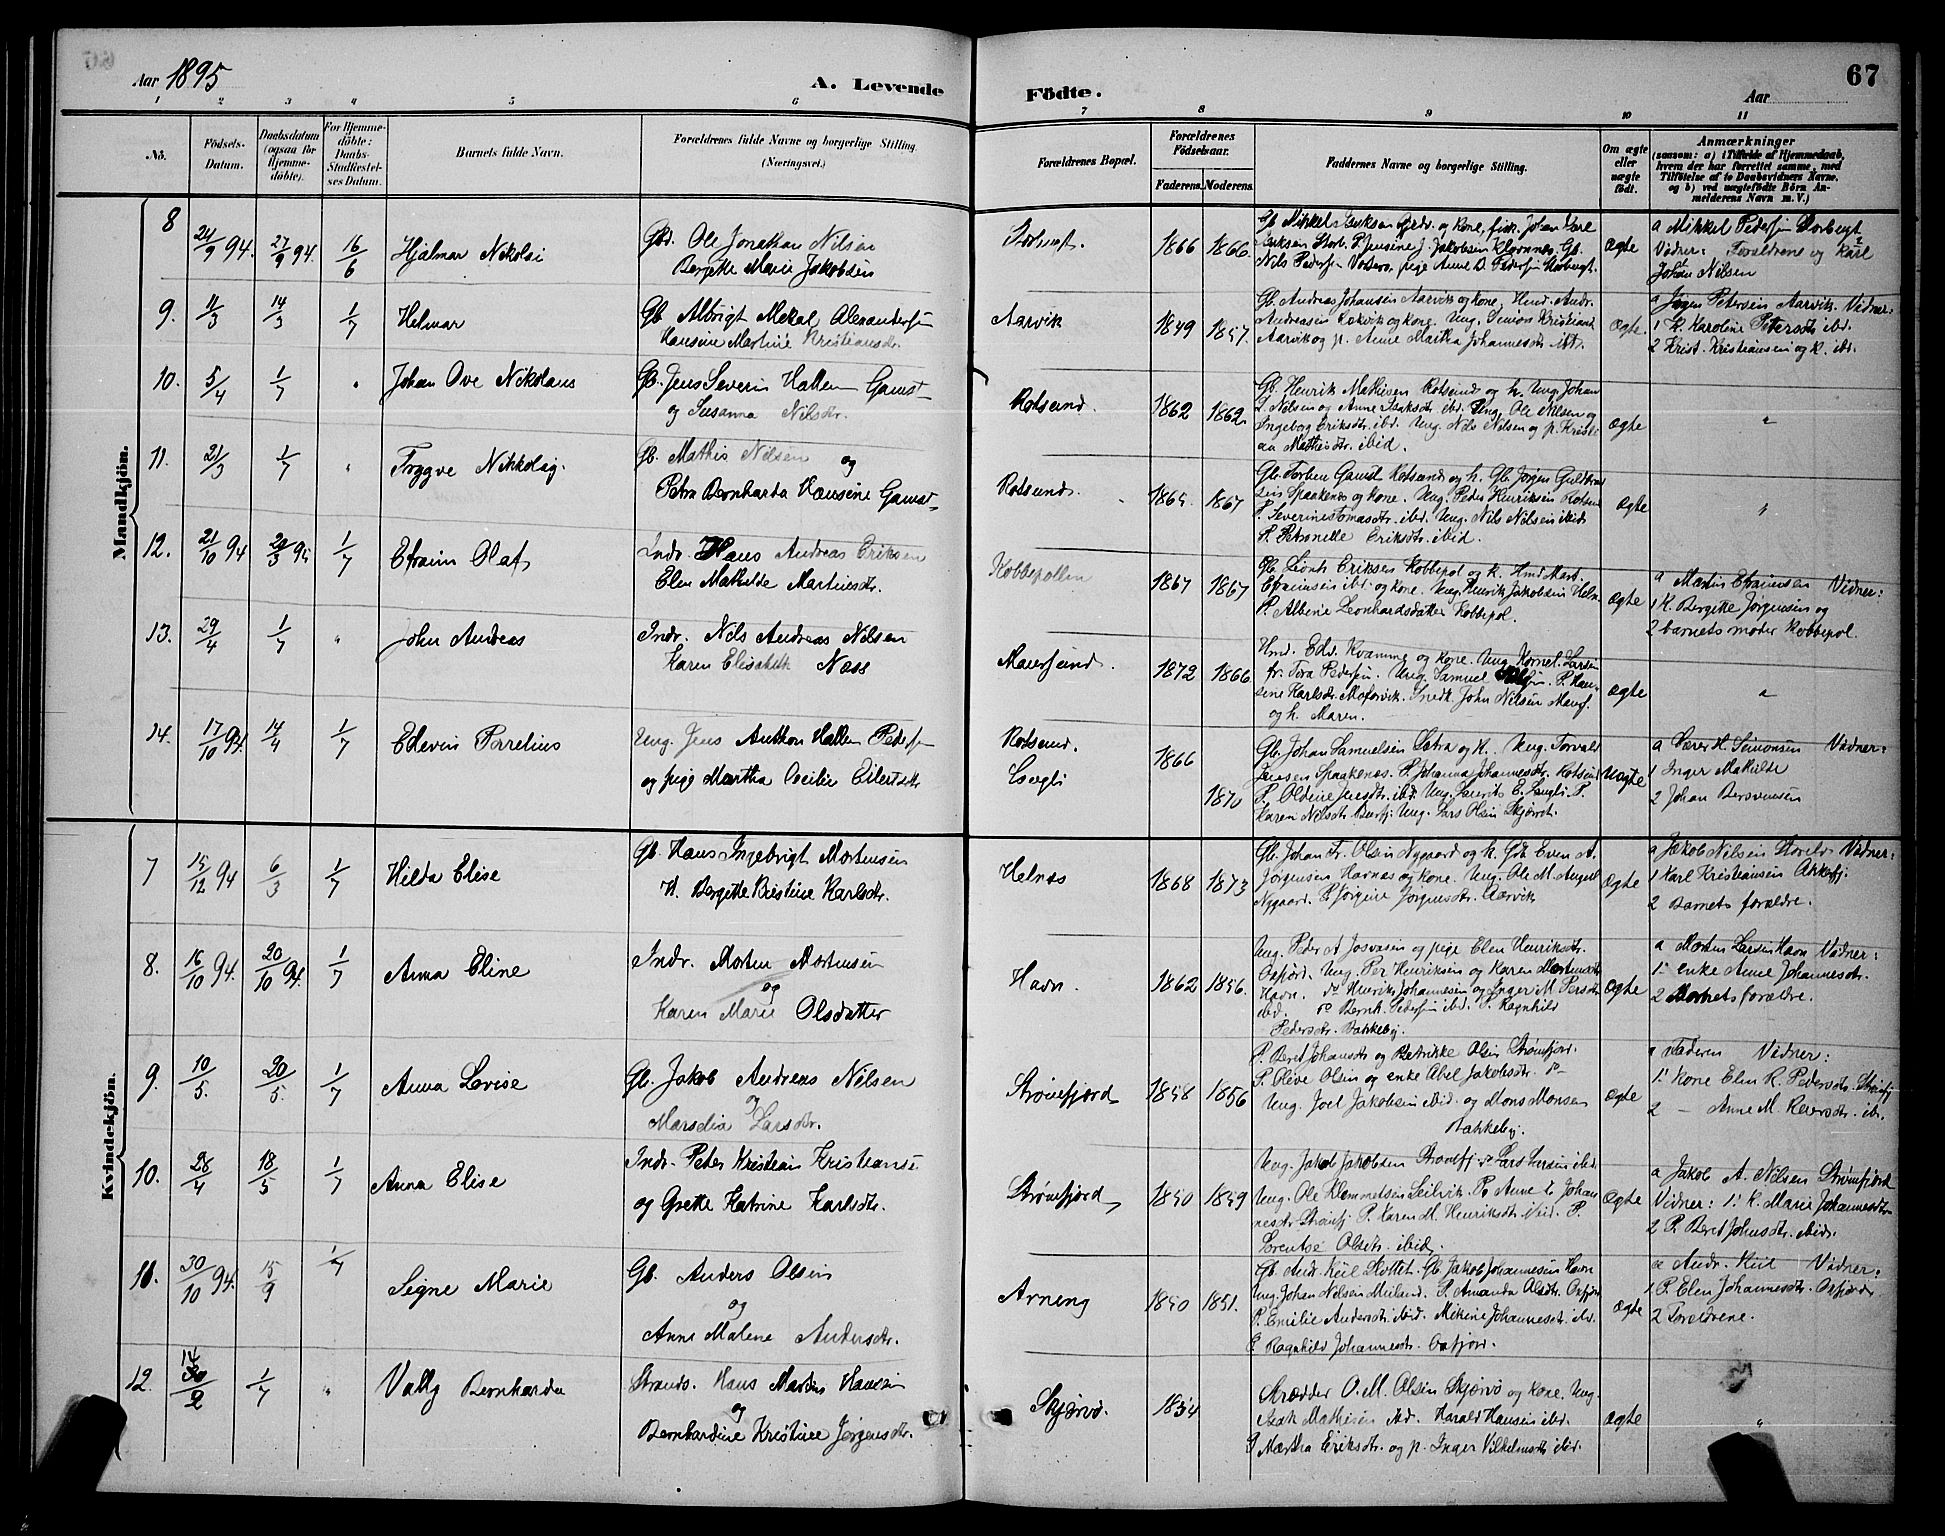 Aar 1895
A. Levende
Fødte.
Aar
67
1 2 3 4 5 6 7 8 9 10 11
No.
Fødsels-
Datum.
Daabsdatum
(ogsaa for
Hjemme-
døbte).
For Hjemme-
døbte:
Daabs-
Stadfæstel-
ses Datum.
Barnets fulde Navn.
Forældrenes fulde Navne og borgerlige Stilling.
(Næringsvei.)
Forældrenes Bopæl.
Forældrenes
Fødselsaar.
Faderens. Moderens.
Faddernes Navne og borgerlige Stilling.
Om ægte
eller
uægte
født.
Anmærkninger
(saasom: a) i Tilfælde af Hjemmedaab,
hvem der har forrettet samme, med
Tilføielse af to Daabsvidners Navne,
og b) ved uægtefødte Børn An-
melderens Navn m. V.)
Mandkjøn.
8
24/9 94. 27/9 94. 16/6
Hjalmar Nikolai
Gbr. Ole Jonathan Nilsen
Bergette Marie Jakobsen
1866 1866.
Ægte
a Mikkel Pedersen Storbugt
Vidner: Forældrene og Karl
Johan Nilsen
9. 11/3 14/3 1/7
Helmar
Gb. Albrigt Mekal Alexandersen
Hansine Martine Kristiansdtr.
Aarvik
1849 1857.
Gb. Andreas Johansen Aarvik og kone,
Aarvik og p. Anne Martha Johannesdtr. ibd.
Ægte.
Petersen Aarvik. Vidner:
1 K. Karoline Petersdtr. ibd.
2 Krist. Kristiansen og K. ibd.
10. 5/4 1/7 "
Johan Ove Nikolaus
Gb. Jens Severin Hallen Gamst
og Susanna Nilsdtr.
Rotsund.
1862 1862.
Gb. Henrik Mathisen Rotsund og h. Ung. Johan
Nilsen og Anne Isaksdtr. ibd. Ung. Ole Nilsen og
Ingebog Eriksdtr. ibd. Ung. Nils Nilsen og p. Kristi
an Mathisdtr. ibid.
Ægte
"
11. 21/3 1/7 "
Tryggve Nikkolay.
Gb. Mathis Nilsen og
Petra Bernharda Hansine Gamst
Rotsund.
1865. 1867
Gb. Torben Gamst Rotsund og h. Gb. Jørgen
sen Spaakenes og kone. Ung. Peder Henriksen Rotsun
P. Severine Tomasdtr. ibd. Ung. Nils Nilsen ibid
P. Petronelle Eriksdtr. ibid.
Ægte
"
12. 21/10 94 1/7
Efraim Olaf
Indr. Hans Andreas Eriksen
Elen Mathilde Martinsdtr.
Kobbepollen
1867 1867
Eriksen Kobbepol og K. Hmd. Mart.
Efraimsen ibd. og kone. Ung. Henrik Jakobsen Heln
P. Albine Leonhardsdatter Kobbepol.
Ægte
a Martin Efraimsen Vidner:
1 K. Bergitte Jørgensen og
2 barnets moder Kobbepol.
13. 29/4 1/7 "
John Andreas
Indr. Nils Andreas Nilsen
Karen Elisabeth Næss
Maursund.
1872 1866.
Hmd. Edv. Kvamme og kone. Ung. Kornel. Larsen
fr. Tora Pedersen. Ung. Samuel
sine Karlsdtr. Snedk. John Nilsen Maurs.
og h. Maren.
Ægte
"
14. 17/10 94. 14/4 1/7
Edevin Perelius
Ung. Jens Anthon Hallen Peders
og pige Martha Cecilie Eilertsdtr
Rotsund.
1866
1870
Gb. Johan Samuelsen og K. Ung. Torvald
Jensen Spaakenes. P. Johanna Johannesdtr. Rotsund
P. Oldine Jensdtr. ibd. Ung. Laurits
Karen Nilsdtr. Ung. Lars Olsen
Uægte
a Simonsen Vidner:
1 Inger Mathilde
2 Johan Bersvensen
Kvindekjøn.
7 15/12 94 6/3 1/7
Hilda Elise
Gb. Hans Ingebrigt Mortensen
H. Bergitte Kristine Karlsdtr.
Helnes
1868 1873
Gb. Johan Fr. Olsen Nygaard og h. Gdb. Even A.
Jørgensen Havnnes og kone. Ung. Ole M.
Nygaard. P. Jørgine Jørgensdtr. Aarvik
Ægte
a Jakob Nilsen Vidner:
1 Karl Kristiansen
2 Barnets forældre.
8. 16/10 94. 20/10 94. 1/7
Anna Eline
Indr. Morten Mortensen
og
Karen Marie Olsdatter
Havn.
1862 1856.
Ung. Peder A. Josvasen og pige Elen Henriksdtr.
Oxfjord. Ung. Per Henriksen og Karen Mortensdtr
Havn. do Henrik Johannesen og Inger M. Persdtr.
ibd. do Bernh. Pedersen ibd. P. Ragnhild
Pedersdtr. Bakkeby.
Ægte
a Morten Larsen Havn Vidner:
1. enke Anne Johannesdtr.
2 Barnets forældre.
9. 10/5. 20/5. 1/7
Anna Lovise
Gb. Jakob Andreas Nilsen
og
Marselia Larsdtr.
Strømfjord
1858 1856
P. Beret Johansdtr og Bedrikke Olsen Strømfjord.
P. Olive Olsen og enke Abel Jakobsdtr. do
Ung. Joel Jakobsen ibid. og Mons Monsen
Bakkeby.
Ægte
a Faderen Vidner:
1. Kone Elen R. Pedersdtr. Strømfj
2 — Anne M. Reiersdtr. ibd.
10. 28/4 18/5 1/7
Anna Elise
Indr. Peder Kristian Kristianse
og Grette Katrine Karlsdtr.
Strømfjord
1850 1859
Ung. Jakob Jakobsen Strømfj. do Lars Larsen ibid.
Ung. Ole Klemmetsen P. Anne E. Johan
nesdtr. Strømfj. P. Karen M. Henriksdtr. ibid. P.
Lorentse Olsdtr. ibid.
Ægte
a Jakob A. Nilsen Strømfjord
Vidner: 1. K. Marie Johannesdtr
2 P. Beret Johnsdtr. ibid.
11. 30/10 94. 15/9 1/7
Signe Marie
Gb. Anders Olsen
og
Anne Malene Andersdtr.
Arneng
1850 1851.
Gb. Andr. Kiil Slottet. Gb. Jakob Johannesen Havn
Ung. Johan Nilsen Meiland. P. Amanda Olsdtr. Oxfjord
P. Emilie Andersdtr. ibid. Mekine Johannesdtr. ibd.
P. Ragnhild Johannesdtr. Oxfjord.
Ægte
a Andr. Kiil Vidner:
1 P. Elen Johannesdtr. Oxfjord
2 Forældrene.
12. 14/2 1/7 "
Vally Bernharda
Strands. Hans Martin Hansen
og
Bernhardine Kristine Jørgensdtr.
Skjervø.
1854
Skrædder O. M. Olsen Skjervø og kone. Ung.
Isak Mathisen ibd. Harald Hansen ibd.
P. Martha Eriksdtr. og p. Inger Vilhelmsdtr. ibid.
Ægte
"